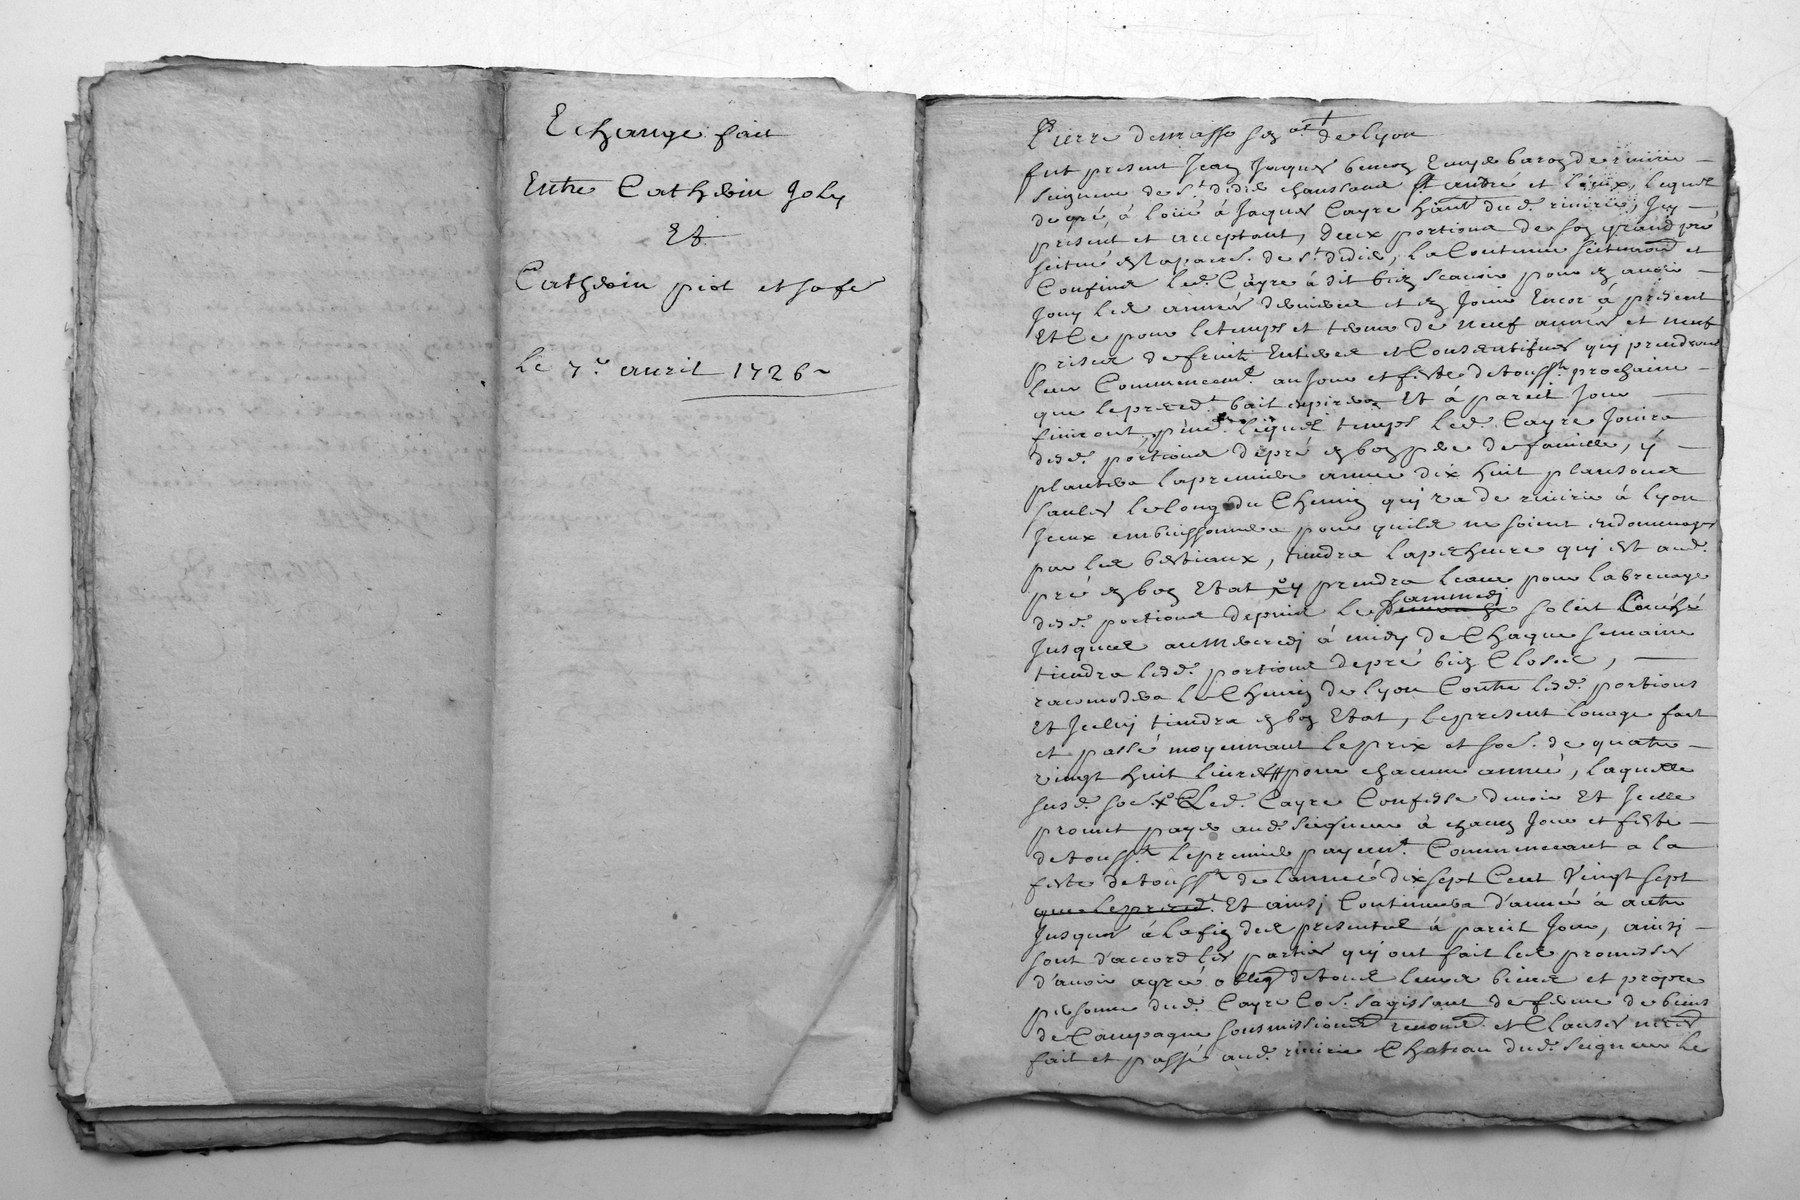 Echange fait
Entre Catherin Joly
Et
Catherin piot et sa fe
Le 7.e avril 1726
Pierre de lyon
fut present Jean Jaques baron de riuirie
seigneur de st didier chaussand st andré et lequel
de gré à loüé à Jaques Cayre hant dud. riuirie, Icy
présent et acceptant, deux portions de son grand pré
scitué en la paroi. de st didier, la Contenue scituaon et
Confins led. Cayre à dit bien scauoir pour en auoir
Jouy les années dernieres et en Jouir Encor à present
Et Ce pour le temps et terme de neuf années et neuf
prises de fruits Entieres et Consecutifues qui prendront
leur Commencemt. au Jour et feste de toussts prochaine
que le preced.t bail expirera Et à pareil Jour
finiront, pend. lequel temps led. Cayre Jouira
desd. portions de pré en bon pere de famille, y
plantera la premiere année dix huit plansons
saules le long du Chemin qui va de riuirie à lyon
Iceux embuissonnera pour quils ne soient endommagés
par les bestiaux, tiendra la pecherie qui est aud.
pré en bon Etat y prendra leau pour labreuage
desd. portions depuis le sammedj soleil Couché
Jusques au Mercredj à midy de Chaque semaine
tiendra lesd. portions de pré bien Closes,
racomodera le Chemin de lyon Contre lesd. portions
Et Iceluj tiendra en bon Etat, le present louage fait
et passé moyennant le prix et soe. de quatre
vingt huit liures pour chacune année, laquelle
susd. soe. led. Cayre Confesse deuoir Et Icelle
promet payer aud. seigneur à chacun Jour et feste
de toussts le premier payemt. Commencant a la
feste de toussts de lanneé dix sept Cent Vingt sept
que le preced.t Et ainsj Continuera d'année à autre
Jusques à la fin des presentes à pareil Jour, ainsj
sont d'accord les parties qui ont fait les promesses
d'auoir agréé oblign de tous leurs biens et propre
personne dud. Cayre Coe. sagissant de ferme de biens
de Campagne sousmissions renons et Clauses neces
fait et passé aud. riuirie Chateau dud. seigneur le